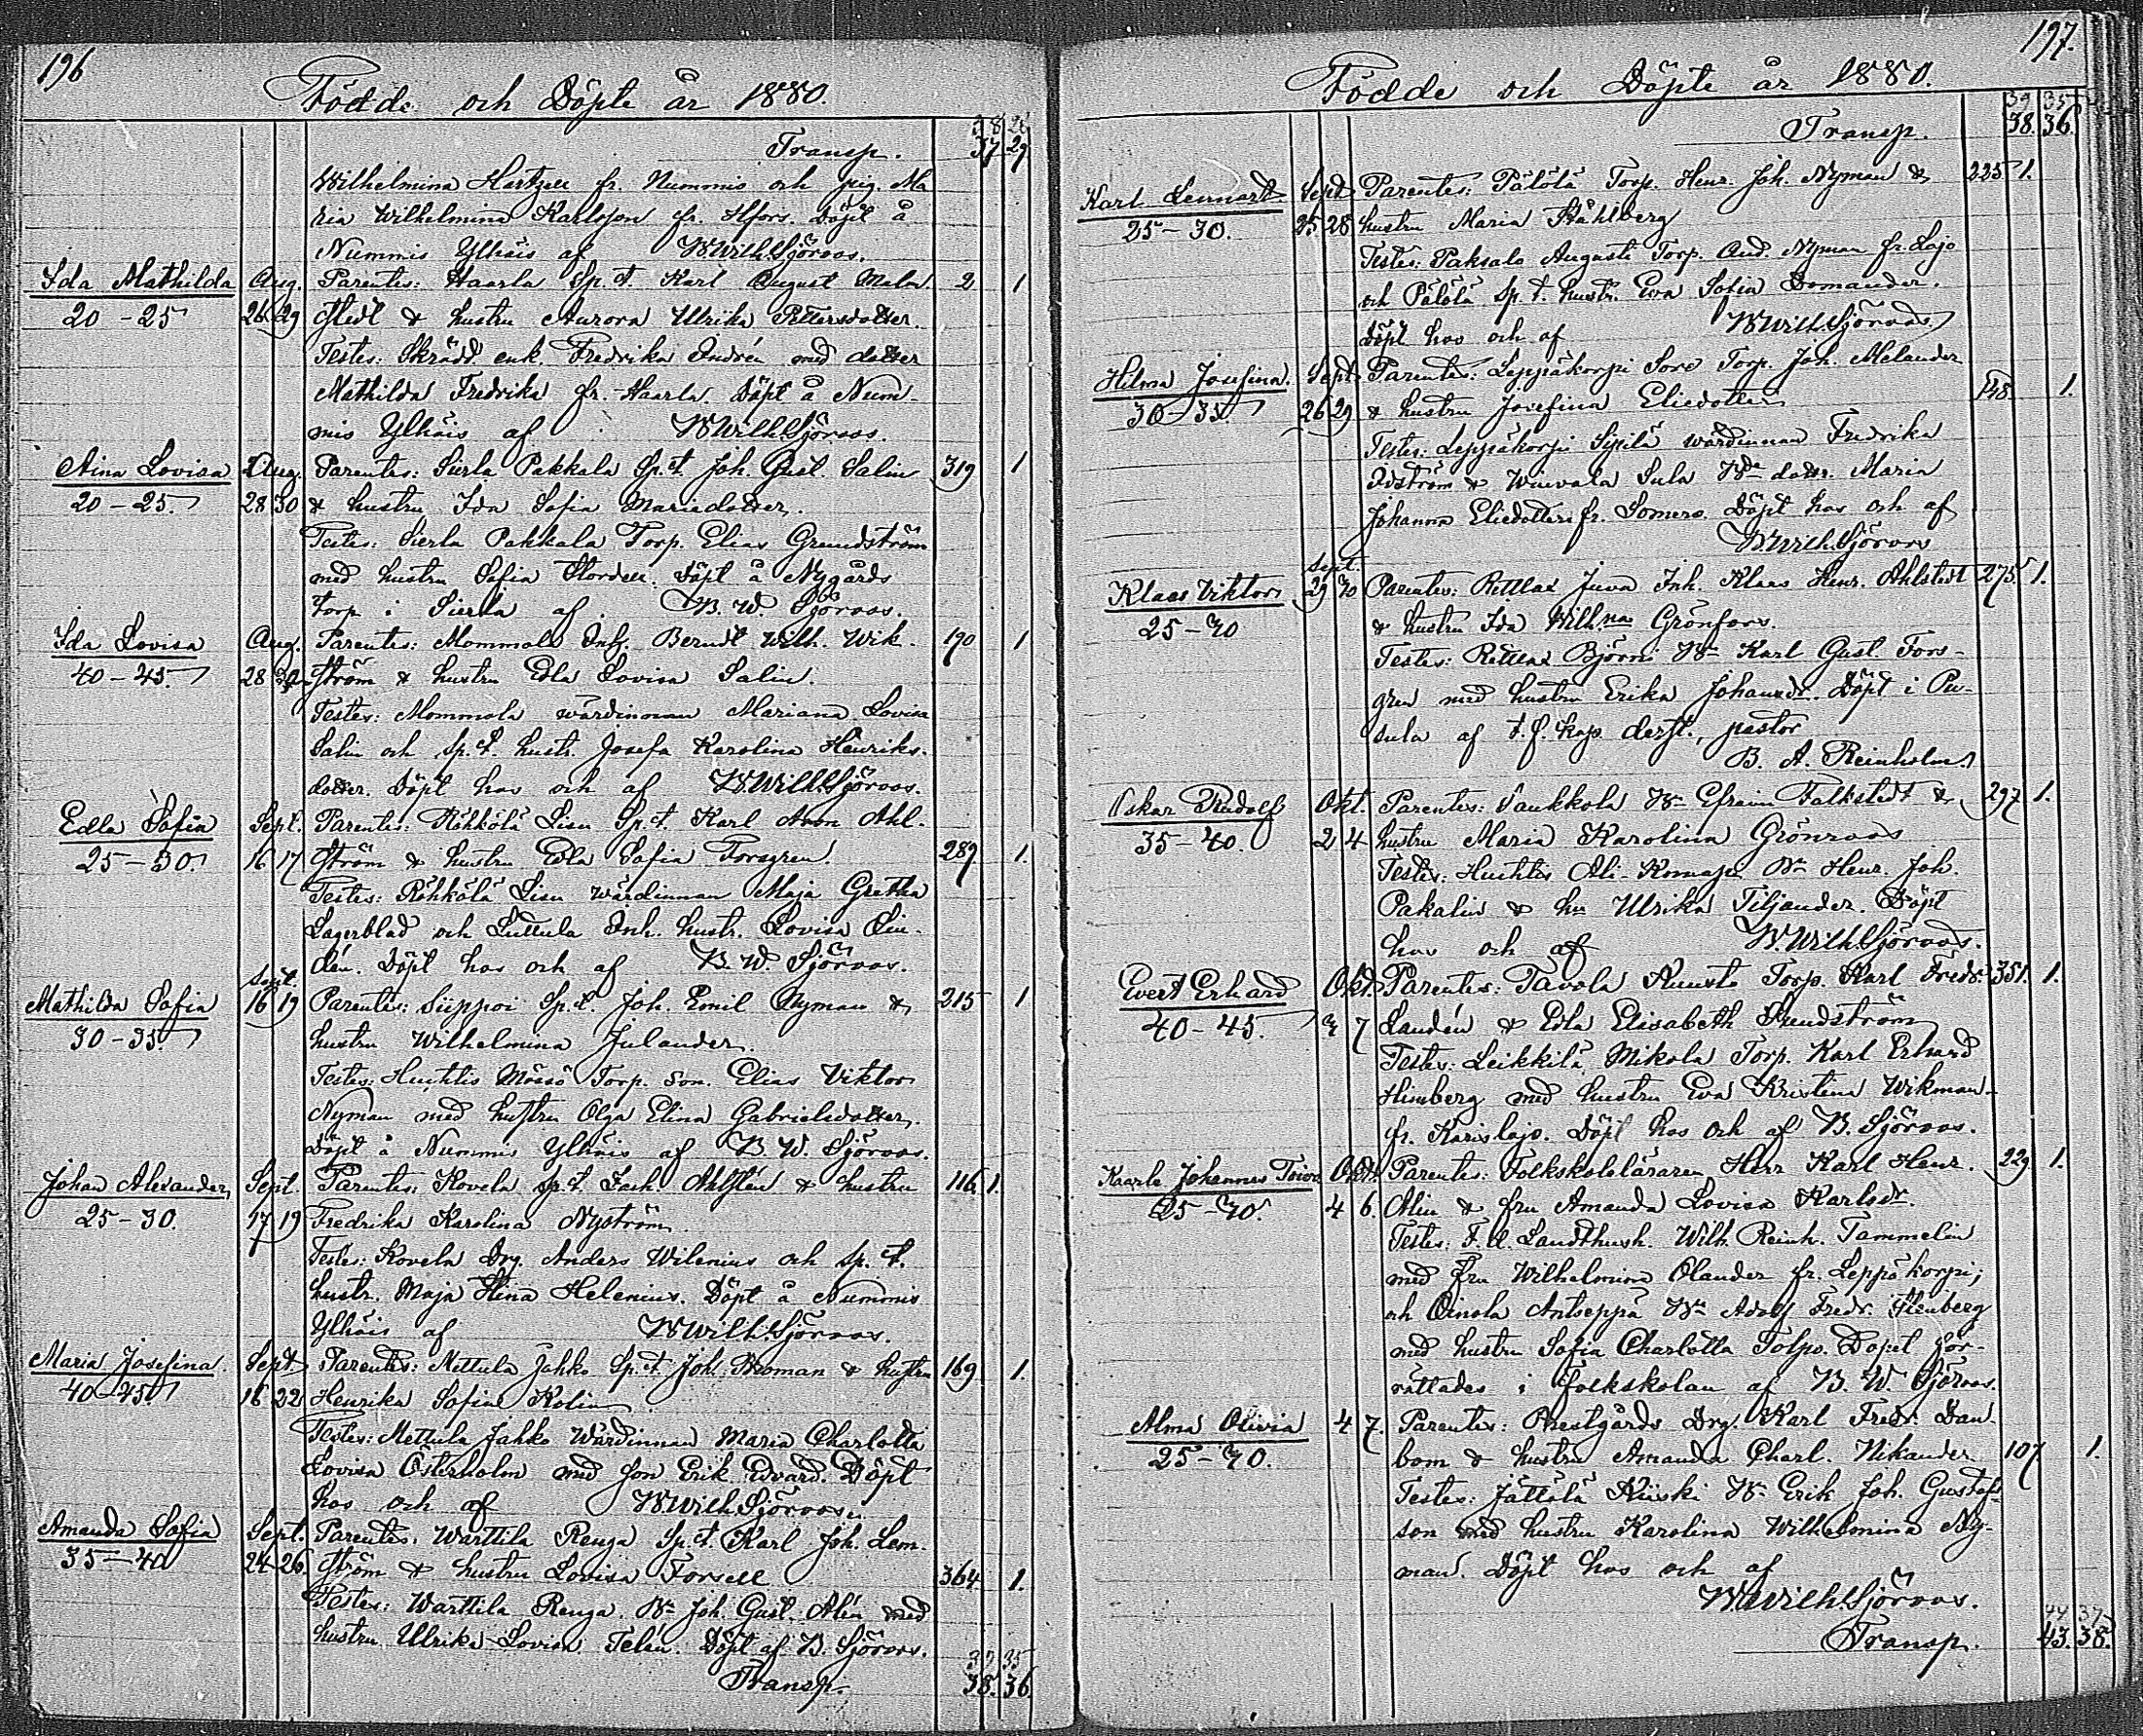 196
Födde och Döpte år 1880.
38 28
Transp. 37 29
Wilhelmina Hartzell fr. Nummis och pig. Ma
ria Wilhelmina Karlsson fr. Hfors. Döpt å
Nummis Ylhäis af W Wilh. Sjöroos.
Ida Mathilda Aug. Parentes: Haarla Sp. t. Karl August Malm 2 1
20-25 26 29 stedt & hustru Aurora Ulrika Pettersdotter.
Testes: Skrädd. enk. Fredrika Andrén med dotter
Mathilda Fredrika fr. Haarla. Döpt å Num-
mis Ylhäis af W Wilh. Sjöroos.
Aina Lovisa Aug. Parentes: Sierla Pakkala Sp. t. Joh. Gust. Salin 319 1
20-25. 28 30 & hustru Ida Sofia Mariedotter.
Testes: Sierla Pakkala Torp. Elias Grundström
med hustru Sofia Stordell. Döpt å Nygårds
torp i Sierla af B. W. Sjöroos.
Ida Lovisa Aug. Parentes: Mommola Inh. Berndt Wilh. Wik- 190 1
40-45. 28 ström & hustru Edla Lovisa Salin.
Testes: Mommola wärdinnan Mariana Lovisa
Salin och Sp. t. hustr. Josefa Karolina Henriks-
dotter. Döpt hos och af W Wilh. Sjöroos.
Edla Sofia Sept. Parentes: Röhkölä Lisu Sp. t. Karl Aron Ahl-
25-30. 16 17 ström & hustru Edla Sofia Forsgren. 289 1.
Testes: Röhkölä Lisu wärdinnan Maja Gretha
Lagerblad och Luttula Inh. hustr. Lovisa Lin-
dén. Döpt hos och af B. W. Sjöroos.
Sept.
Mathilda Sofia 16 19 Parentes: Siippoi Sp. t. Joh. Emil Nyman & 215 1
30-35. hustru Wilhelmina Julander.
Testes: Huhtis Mössö Torp. Son. Elias Viktor
Nyman med hustru Olga Elina Gabrielsdotter.
Döpt å Nummis Ylhäis af B. W. Sjöroos.
Johan Alexander Sept. Parentes: Kovela Sp. t. Isak Ahlstén & hustru 116. 1.
25-30. 17 19 Fredrika Karolina Nyström
Testes: Kovela Drg. Anders Wilenius och Sp. t.
hustr. Maja Stina Helenius. Döpt å Nummis
Ylhäis af W Wilh. Sjöroos.
Maria Josefina. Sept. Parentes: Mettula Jahko Sp. t. Joh. Boman & hustru 169 1.
40-45. 16 22 Henrika Sofia Kolin
Testes: Mettula Jahko Wärdinnan Maria Charlotta
Lovisa Österholm med son Erik Edvard. Döpt
hos och af W Wilh. Sjöroos.
Amanda Sofia Sept. Parentes: Warttila Renga Sp. t. Karl Joh. Lem-
35-40 24 26. ström & hustru Lovisa Forsell 364 1.
Testes: Warttila Renga Bn Joh. Gust. Alén med
hustru Ulrika Lovisa Telén. Döpt af B. Sjöroos.
39 35
Transp. 38. 36.
197.
Födde och Döpte år 1880.
39 35
Transp. 38. 36.
Karl Lennart Sept. Parentes: Pälölä Torp. Henr. Joh. Nyman & 225 1.
25-30. 25 28 hustru Maria Ståhlberg
Testes: Paksalo Augusti Torp. And. Nyman fr. Lojo
och Pälölä Sp. t. hustr. Eva Sofia Bomander.
Döpt hos och af W Wilh. Sjöroos.
Hilma Josefina. Sept. Parentes: Leppäkorpi Torp. Joh. Melander
30-35. 26 29 & hustru Josefina Eliedotter 148. 1.
Testes: Leppäkorpi Sipilä wärdinnan Fredrika
Edström & Wiuvala Sula Bn dotter. Maria
Johanna Eliedotter fr. Somero. Döpt hos och af
W. Wilh. Sjöroos
Sept.
Klaes Viktor 29 30 Parentes: Rettlax Juva Inh. Klaes Henr. Ahlstedt 275. 1.
25-30 & hustru Ida Wilh.na Grönfors.
Testes: Rettlax Björni Bn Karl Gust. Fors-
gren med hustru Erika Johansdr. Döpt i Pu-
sula af t. f. kap. derst., pastor
B. A. Reinholm.
Oskar Rudolf Okt. Parentes: Saukkola Bn Efraim Falkstedt & 297 1.
35-40. 2 4 hustru Maria Karolina Grönroos
Testes: Huhtis Ali-Knaapi Bn Henr. Joh.
Pakalin & hu Ulrika Tiljander. Döpt
hos och af W. Wilh. Sjöroos.
Evert Erhard Okt. Parentes: Tavola Kuusto Torp. Karl Fredr. 351. 1.
40-45. 3 7 Landén & Edla Elisabeth Sundström
Testes: Leikkilä Mikola Torp. Karl Erhard
Himberg med hustru Eva Kristina Wikman
fr. Karislojo. Döpt hos och af B. Sjöroos.
Kaarle Johannes Toivo Okt. Parentes: Folkskoleläraren Herr Karl Henr. 229 1.
25-30. 4 6. Alin & fru Amanda Lovisa Karlsdr.
Testes: F. d. Landthush. Wilh. Reinh. Tammelin
med fru Wilhelmina Olander fr. Leppäkorpi;
och Oinola Antseppä Bn Adolf Fredr. Stenberg
med hustru Sofia Charlotta Tolpo. Dopet för-
rättades i folkskolan af B. W. Sjöroos.
Alma Olivia 4 7. Parentes: Prestgårds Drg. Karl Fredr. Dan-
25-30. bom & hustru Amanda Charl. Nikander 107. 1.
Testes: Jättölä Kiiski Bn Erik Joh. Gustafs-
son med hustru Karolina Wilhelmina Ny-
man. Döpt hos och af
W. Wilh. Sjöroos.
44 37
Transp. 43. 38.